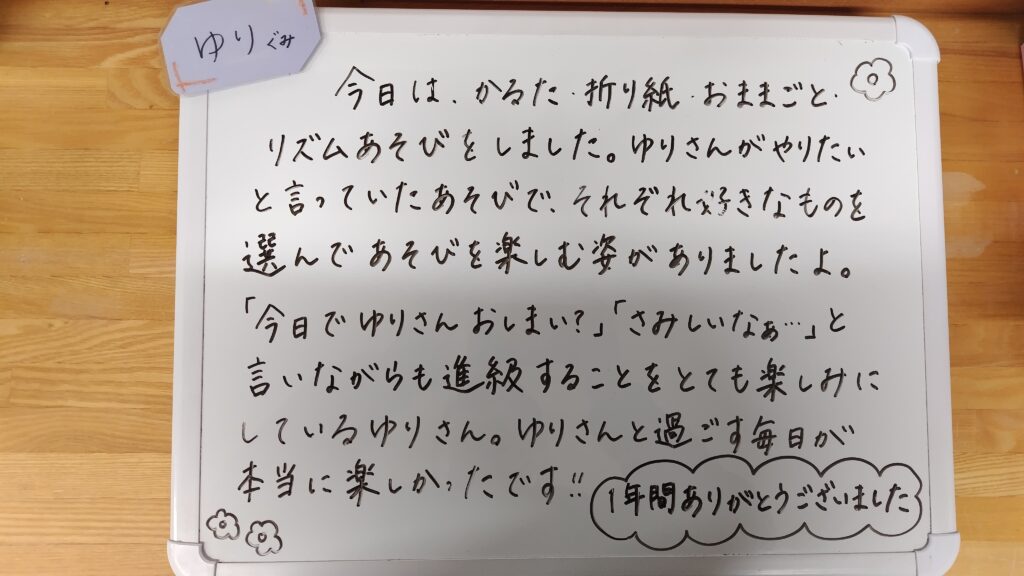 ゆりぐみ
今日は、かるた・折り紙・おままごと・
リズムあそびをしました。ゆりさんがやりたい
と言っていたあそびで、それぞれ好きなものを
選んであそびを楽しむ姿がありましたよ。
「今日でゆりさんおしまい?」「さみしいなぁ…」と
言いながらも進級することをとても楽しみに
しているゆりさん。ゆりさんと過ごす毎日が
本当に楽しかったです!!
1年間ありがとうございました